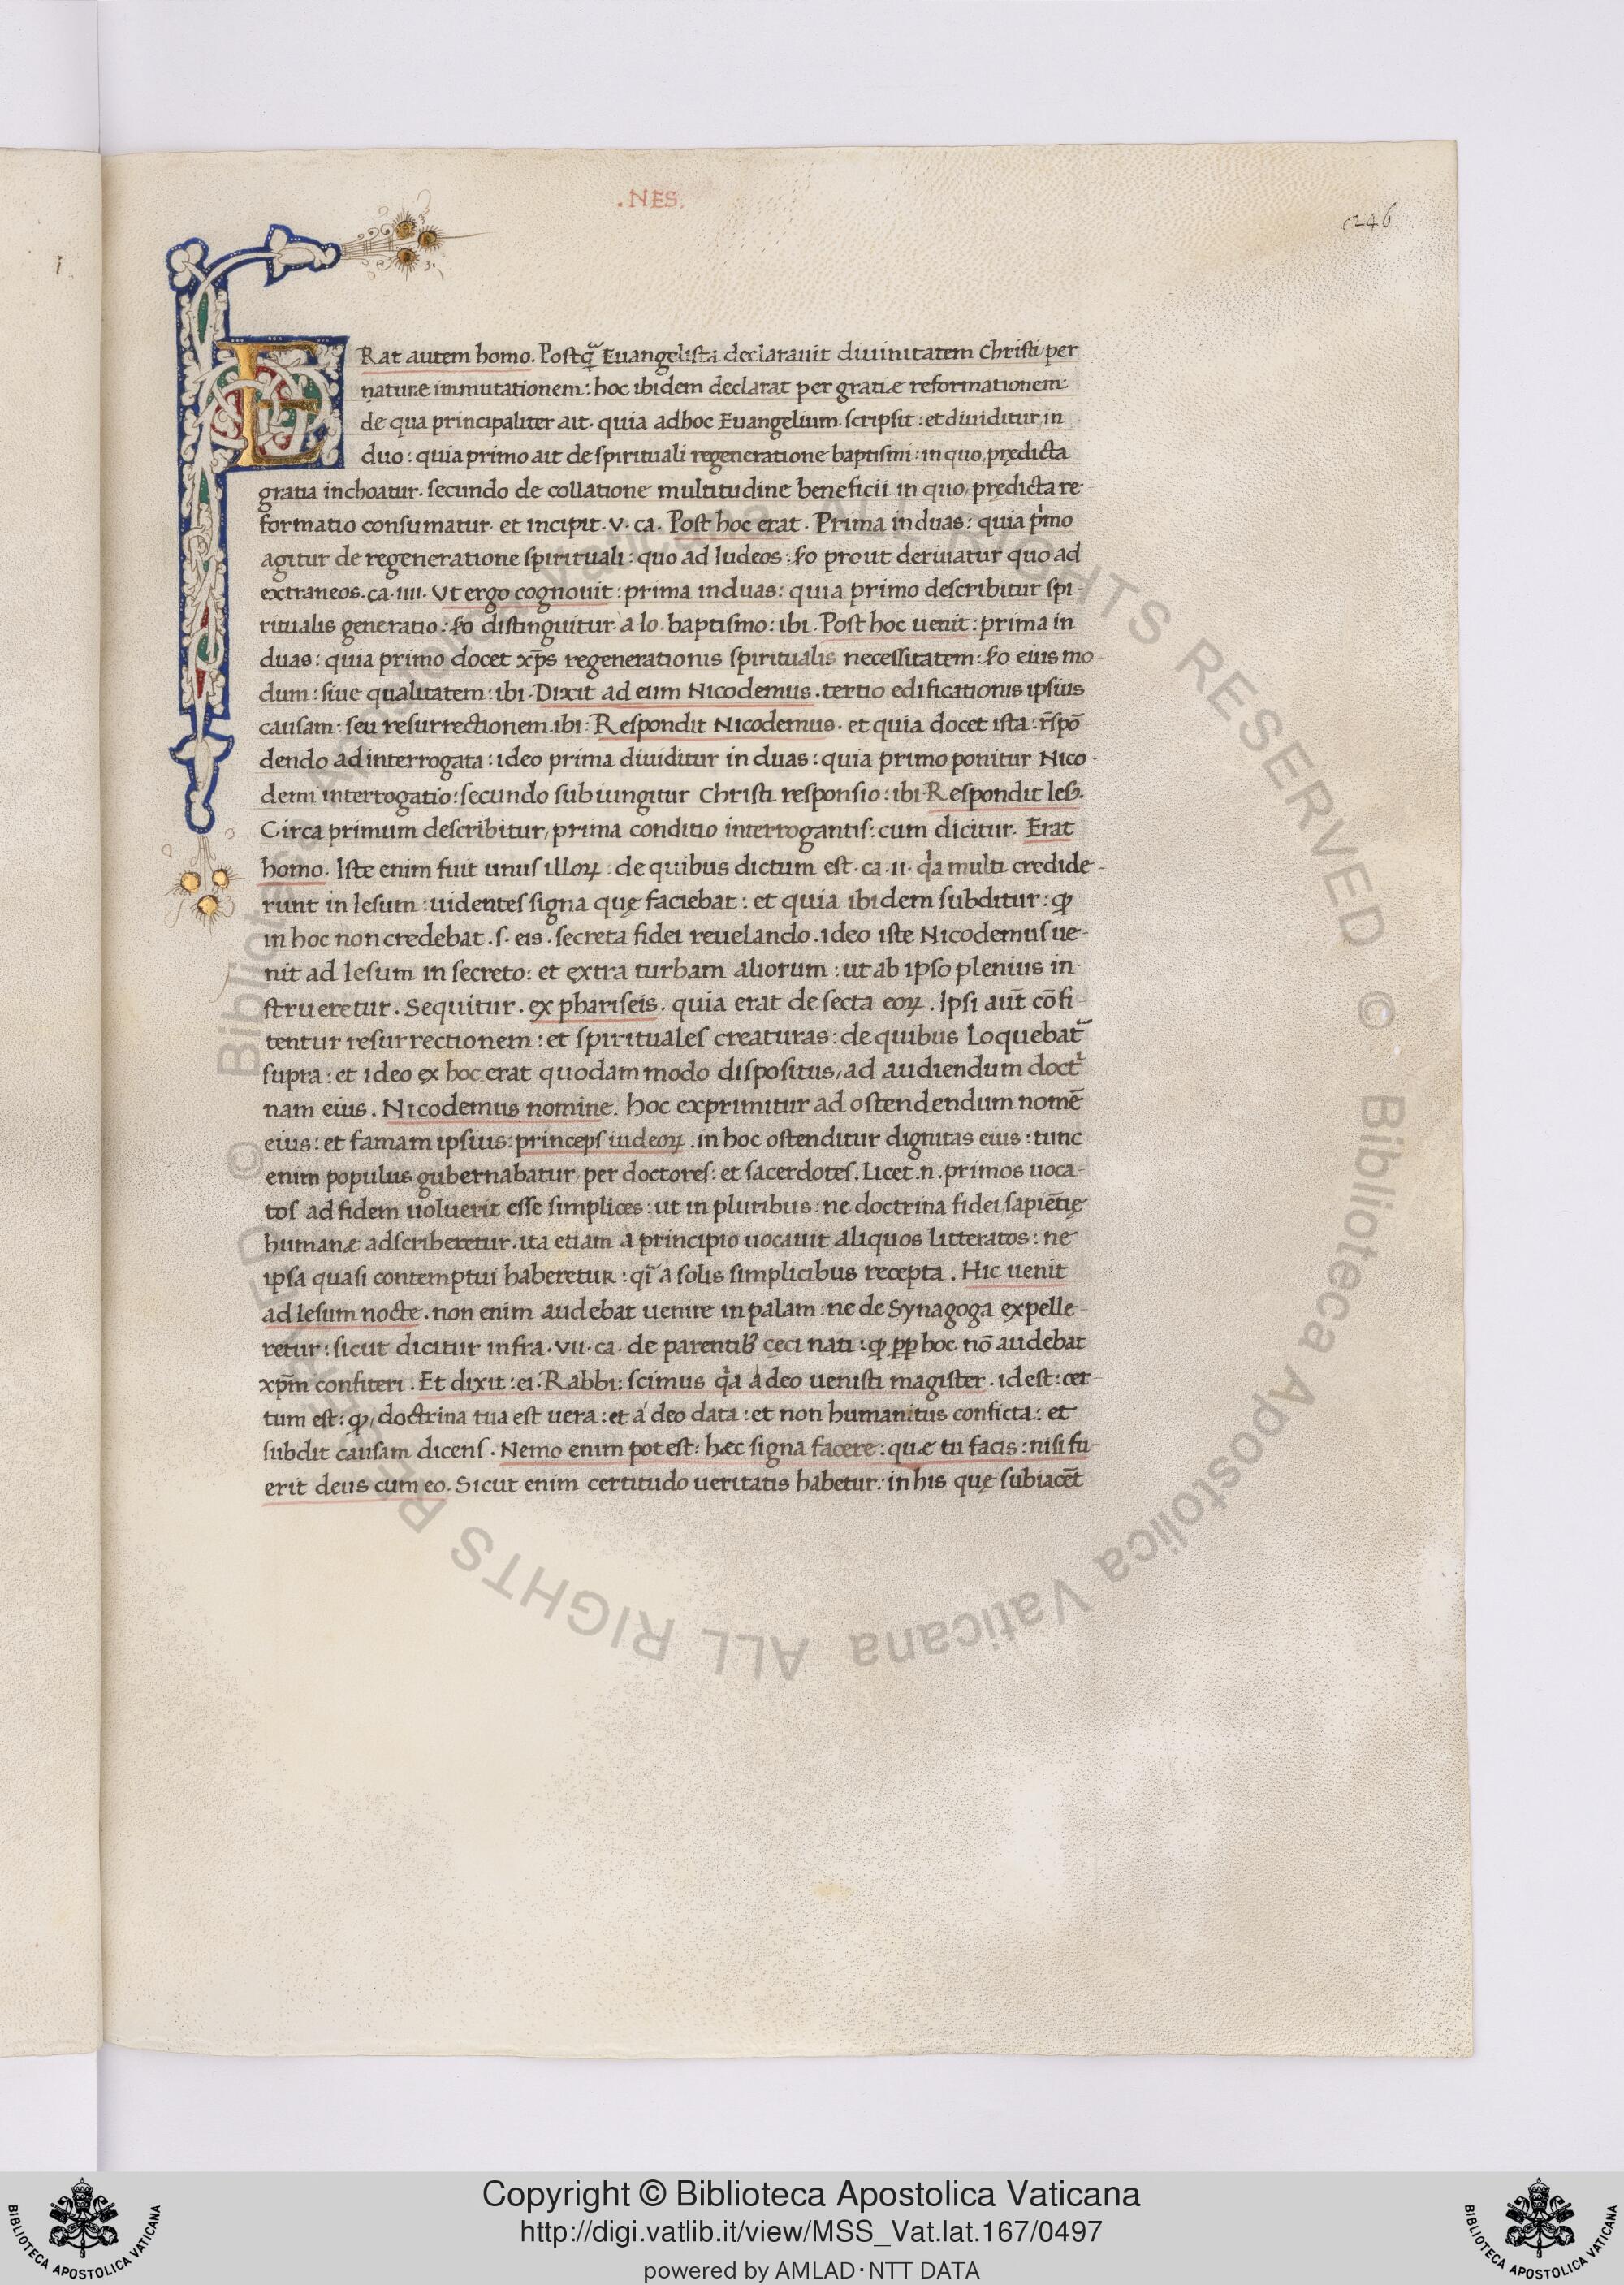 .NES.
246
i
ERat autem homo. Postq̃ Euangelista declarauit diuinitatem Christi per
naturæ immutationem: hoc ibidem declarat per gratiæ reformationem:
de qua principaliter ait. quia adhoc Euangelium scripsit: et diuiditur in
duo: quia primo ait de spirituali regeneratione baptismi: in quo, prędicta
gratia inchoatur. secundo de collatione multitudine beneficii in quo, prędicta re-
formatio consumatur. et incipit. v. ca. Post hoc erat. Prima in duas: quia pͥmo
agitur de regeneratione spirituali: quo ad Iudeos: ſo prout deriuatur quo ad
extraneos. ca. IIII. Vt ergo cognouit: prima in duas: quia primo describitur spi-
ritualis generatio: ſo distinguitur à Io. baptismo: ibi. Post hoc uenit: prima in
duas: quia primo docet xp̄s regenerationis spiritualis necessitatem: ſo eius mo-
dum: siue qualitatem: ibi. Dixit ad eum Nicodemus. tertio edificationis ipsius
causam: seu resurrectionem. ibi: Respondit Nicodemus. et quia docet ista: r̄spō-
dendo ad interrogata: ideo prima diuiditur in duas: quia primo ponitur Nico-
demi interrogatio: secundo subiungitur Christi responsio: ibi. Respondit Ieſꝰ.
Circa primum describitur, prima conditio interrogantis: cum dicitur. Erat
homo. Iste enim fuit unus illoꝝ: de quibus dictum est. ca. II. qͥa multi credide-
runt in Iesum: uidentes signa quę faciebat: et quia ibidem subditur: ꝙ
in hoc non credebat. s. eis. secreta fidei reuelando. ideo iste Nicodemus ue-
nit ad Iesum in secreto: et extra turbam aliorum: ut ab ipso plenius in-
strueretur. Sequitur. ex phariseis. quia erat de secta eoꝝ. Ipsi aut̄ cōfi-
tentur resurrectionem: et spirituales creaturas: de quibus Loquebat᷑
supra: et ideo ex hoc erat quodammodo dispositus, ad audiendum doctͥ
nam eius. Nicodemus nomine. hoc exprimitur ad ostendendum nomē
eius: et famam ipsius: princeps iudeoꝝ. in hoc ostenditur dignitas eius: tunc
enim populus gubernabatur, per doctores: et sacerdotes. Licet .n. primos uoca-
tos ad fidem uoluerit esse simplices: ut in pluribus: ne doctrina fidei, sapiētię
humanæ adscriberetur. ita etiam à principio uocauit aliquos litteratos: ne
ipsa quasi contemptui haberetur: qı̄ à solis simplicibus recepta. Hic uenit
ad Iesum nocte. non enim audebat uenire in palam: ne de Synagoga expelle-
retur: sicut dicitur infra. VII. ca. de parentibꝰ cęci nati: ꝙ ꝑꝑ hoc nō audebat
xp̄m confiteri. Et dixit: ei. Rabbi: scimus qͥa à deo uenisti magister. id est: cer-
tum est: ꝙ, doctrina tua est uera: et à deo data: et non humanitus conficta: et
subdit causam dicens. Nemo enim potest: hæc signa facere: quæ tu facis: nisi fu-
erit deus cum eo. Sicut enim certitudo ueritatis habetur: in his quę subiacēt
© Biblioteca Apostolica Vaticana ALL RIGHTS RESERVED © Biblioteca Apostolica Vaticana ALL RIGHTS RESERVED
BIBLIOTECA APOSTOLICA VATICANA
Copyright © Biblioteca Apostolica Vaticana
http://digi.vatlib.it/view/MSS_Vat.lat.167/0497
powered by AMLAD·NTT DATA
BIBLIOTECA APOSTOLICA VATICANA